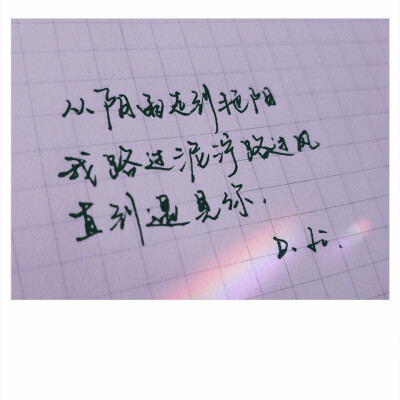 从阴雨走到艳阳
我路过泥泞路过风
直到遇见你.
D.